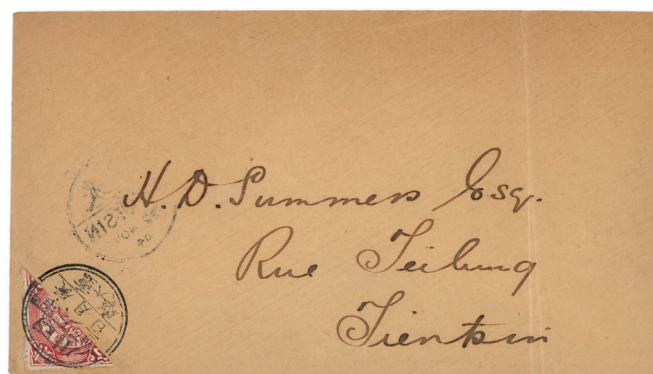 H. D. Summers Esq.
Rue Teilung
Tientsin